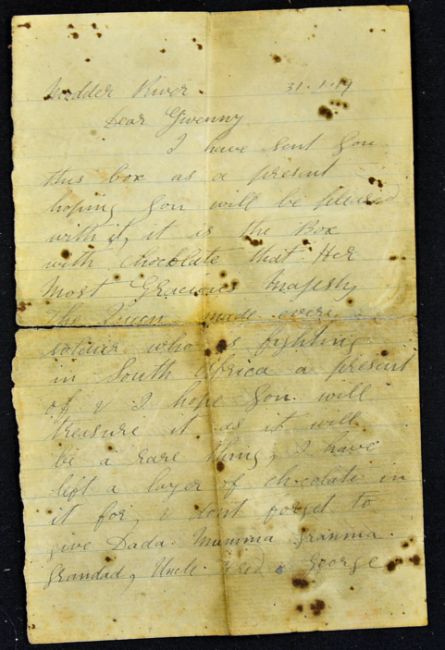 Modder River 31.1.19
Dear Gwenny
I have sent you
this box as a present
hoping you will be pleased
with it, it is the Box
with chocolate that Her
Most Gracious Majesty
The Queen made every
soldier who is fighting
in South Africa a present
of & I hope you will
treasure it as it will
be a rare thing, I have
left a layer of chocolate in
it for, & dont forget to
give Dada. Mumma Granma.
Grandad, Uncle George